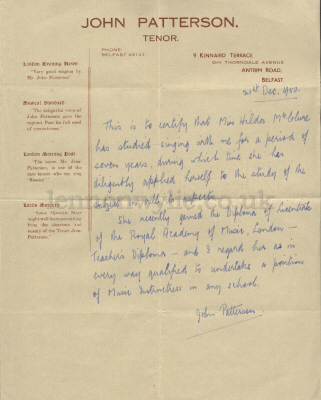 JOHN PATTERSON.
TENOR.
PHONE
BELFAST
9 KINNAIRD TERRACE,
OFF THORNDALE AVENUE
ANTRIM ROAD,
BELFAST.
21st Dec. 1950.
London Evening News—
"Very good singing by
Mr. John Patterson"
Musical Standard—
The delightful voice of
John Patterson gave the
London Morning Post—
"The tenor, Mr. John
Patterson, is one of the
Leeds Mercury—
beauty of the Tenor John
Patterson."
This is to certify that Miss Hilda McClure
has studied singing with me for a period of
seven years, during which time she has
diligently applied herself to the study of the
subject in all its aspects.
She recently gained the Diploma of Licentiate
of the Royal Academy of Music, London —
Teacher's Diploma — and I regard her as in
every way qualified to undertake a position
of Music Instructress in any school.
John Patterson.